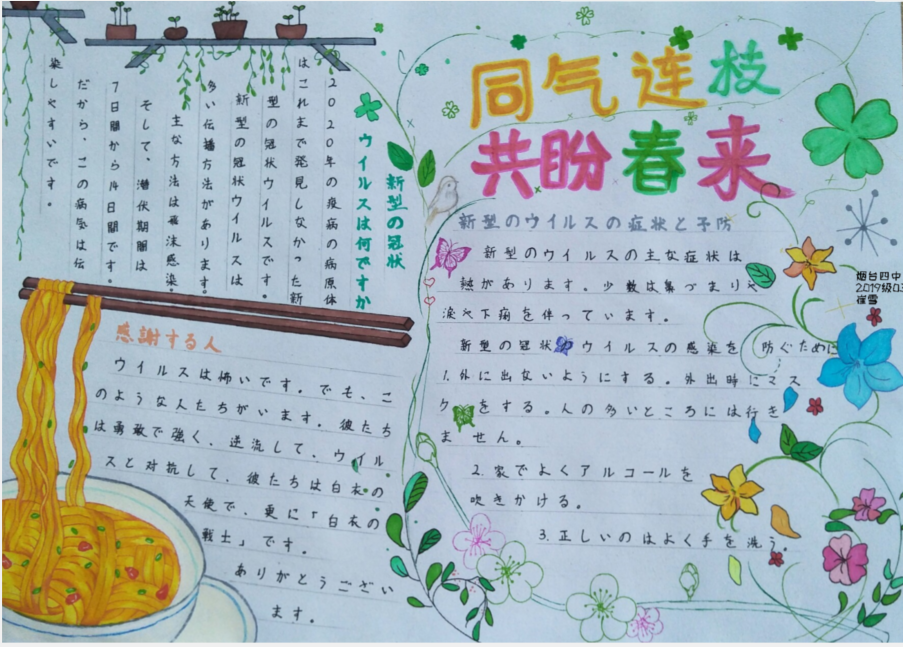 同气连枝
共盼春来
新型の冠状
ウイルスは何ですか
2020年の疫病の病原体
はこれまで発見しなかった新
型の冠状ウイルスです。
新型の冠状ウイルスは
多い伝播方法があります。
主な方法は飛沫感染.
そして、潜伏期間は
7日間から14日間です。
だから、この病気は伝
染しやすいです。
感謝する人
ウイルスは怖いです。でも、こ
のような人たちがいます。彼たち
は勇敢で強く、逆流して、ウイル
スと対抗して、彼たちは白衣の
天使で、更に「白衣の
戦士」です。
ありがとうござい
ます。
新型のウイルスの症状と予防
新型のウイルスの主な症状は
熱があります。少数は鼻づまりや
涙や下痢を伴っています。
新型の冠状のウイルスの感染を防ぐために
1.外に出ないようにする。外出時にマス
クをする。人の多いところには行き
ません。
2.家でよくアルコールを
吹きかける。
3.正しいのはよく手を洗う。
烟台四中
2019级
崔雪